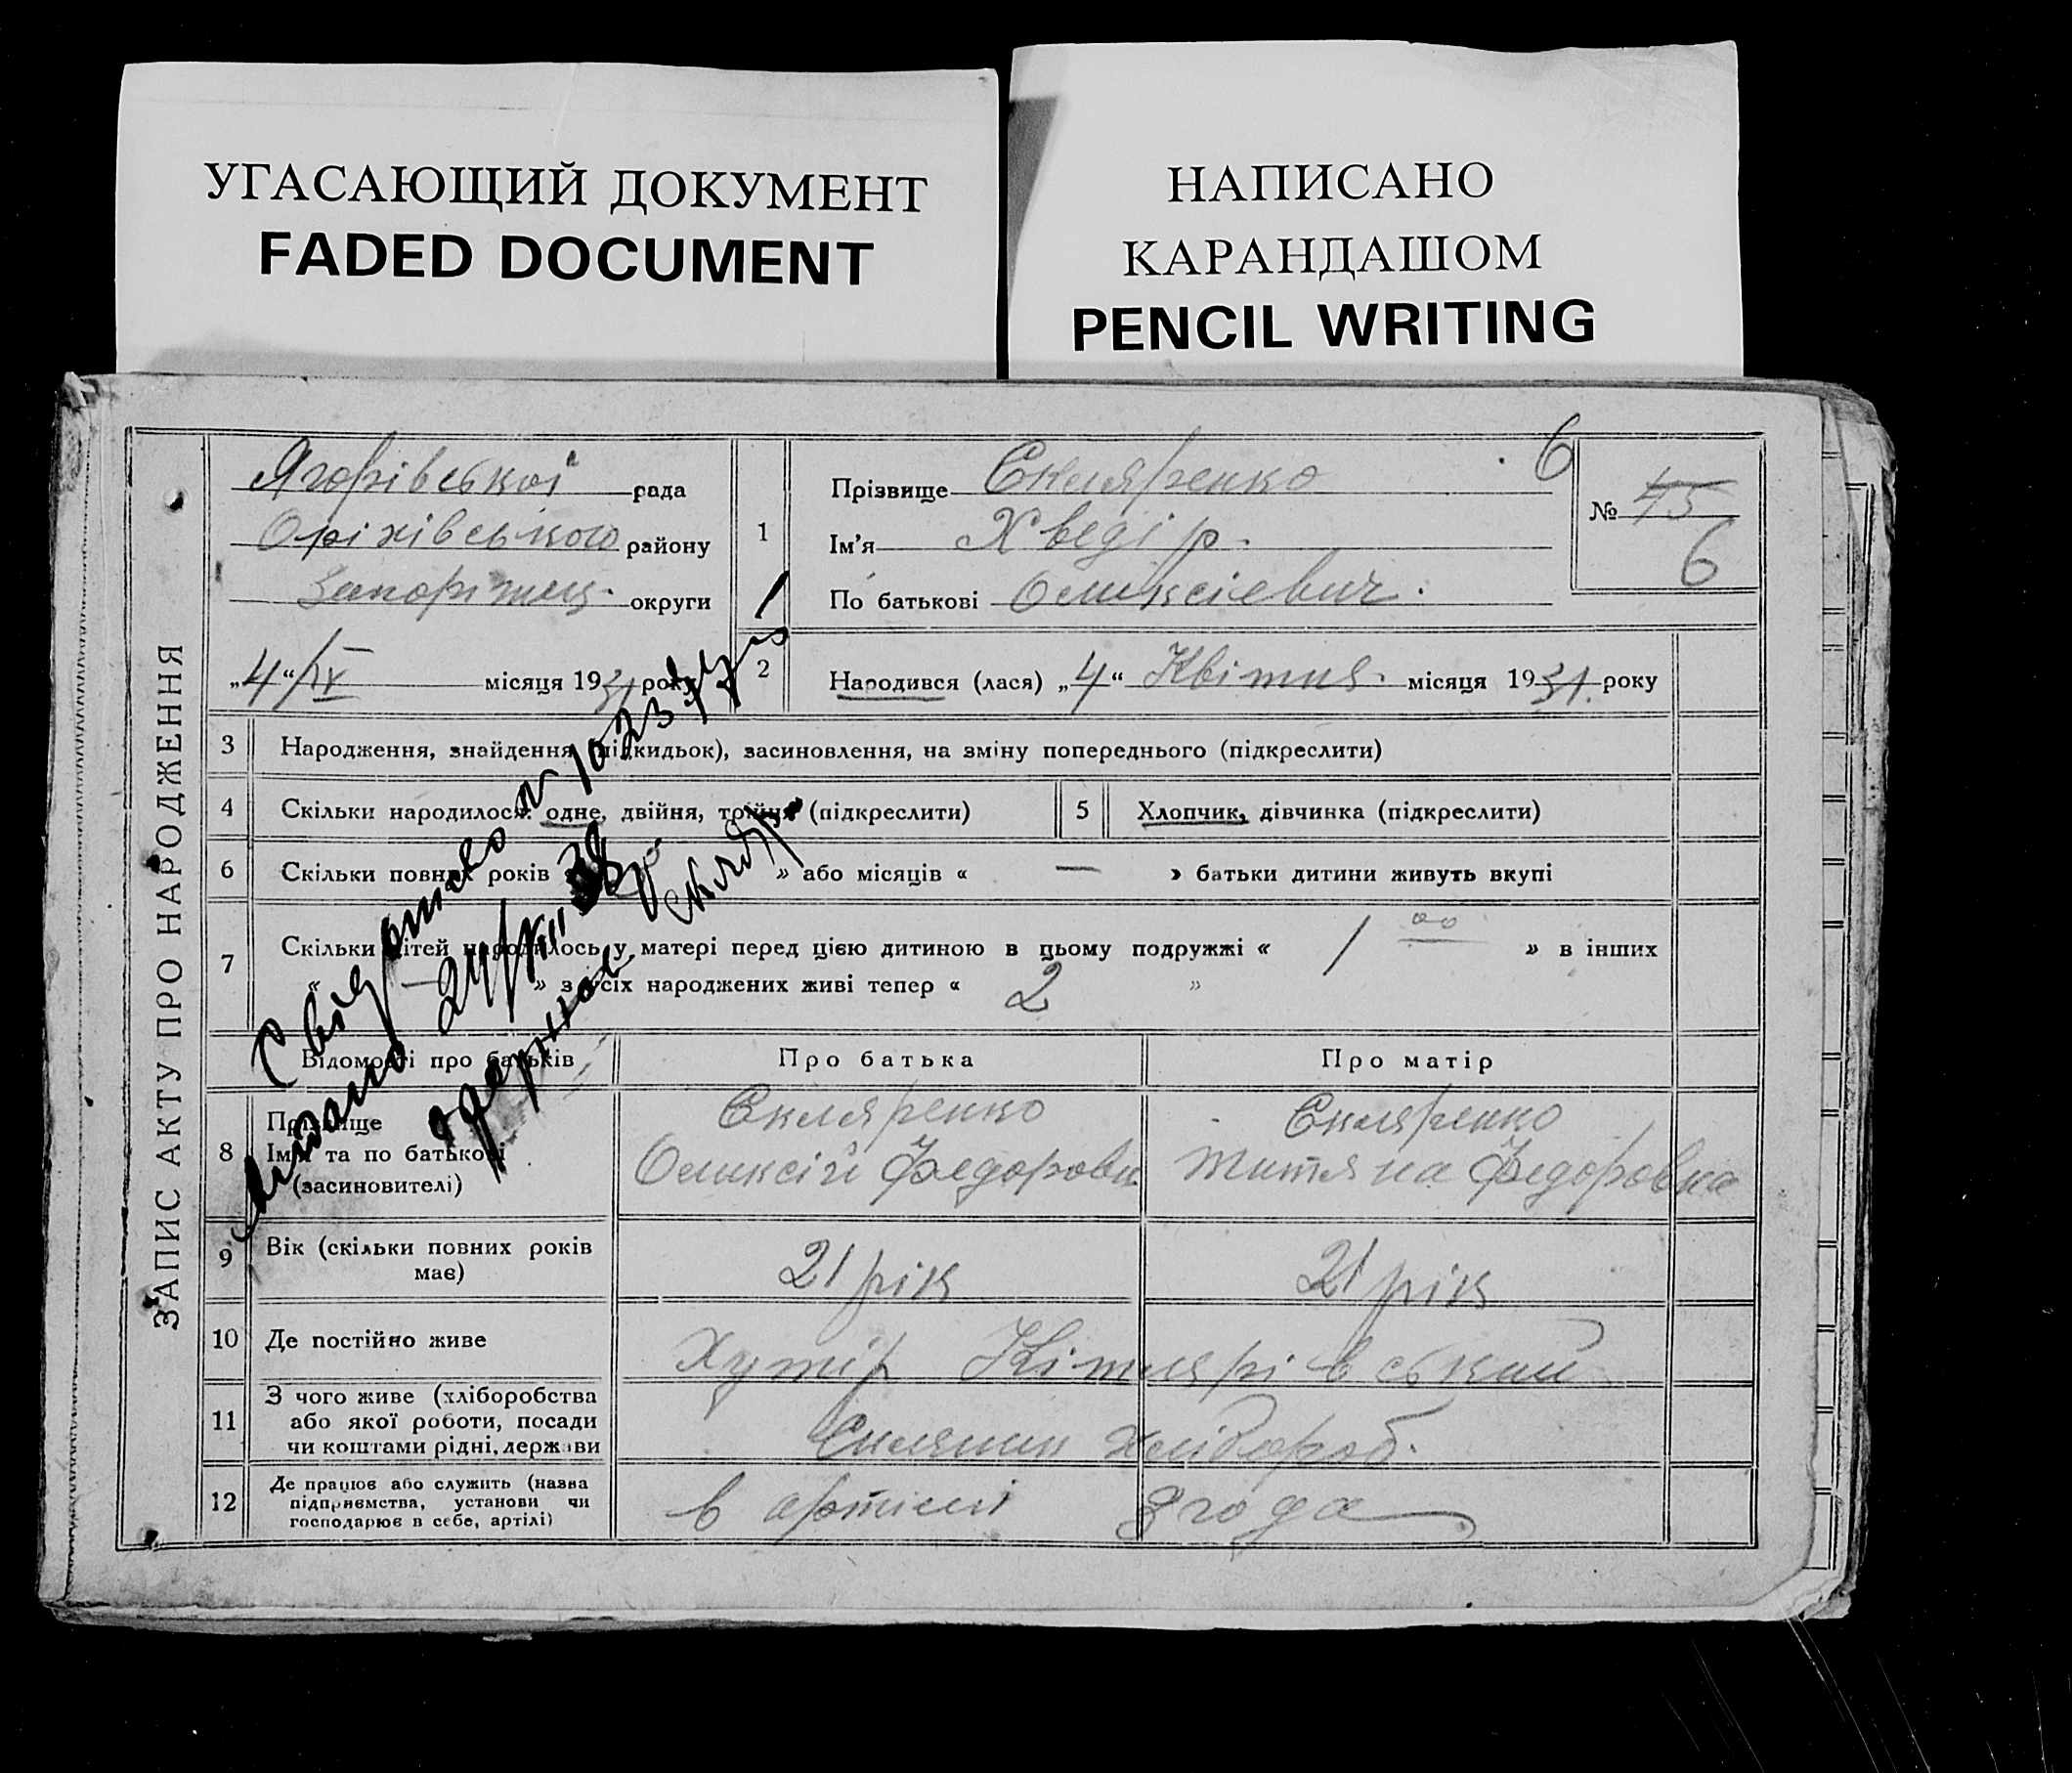 УГАСАЮЩИЙ ДОКУМЕНТ
FADED DOCUMENT
НАПИСАНО
КАРАНДАШОМ
PENCIL WRITING
ЗАПИС АКТУ ПРО НАРОДЖЕННЯ
Ягорівської рада
Оріхівського району
Запоріжець. округи
„4“/IV місяця 1931 року
1
Прізвище Скляренко
Ім'я Хведір.
По батькові Оликсієвич.
6
№ 45
6
2 Народився (лася) „4“ Квітня. місяця 1931. року
3 Народження, знайдення (підкидьок), засиновлення, на зміну попереднього (підкреслити)
4 Скільки народилося: одне, двійня, трійня (підкреслити)
5 Хлопчик, дівчинка (підкреслити)
6 Скільки повних років « » або місяців « — » батьки дитини живуть вкупі
7 Скільки дітей народилось у матері перед цією дитиною в цьому подружжі « 1 » в інших
« » з усіх народжених живі тепер « 2 »
Відомості про батьків
Про батька
Про матір
8 Прізвище
Ім'я та по батькові
(засиновителі)
Скляренко
Оликсій Федорович
Скляренко
Титяна Федоровна
9 Вік (скільки повних років
має)
21 рік
21 рік
10 Де постійно живе
Хутір
11 З чого живе (хліборобства
або якої роботи, посади
чи коштами рідні, держави
Селянин хлібороб.
12 Де працює або служить (назва
підприємства, установи чи
господарює в себе, артілі)
в артілі Згода